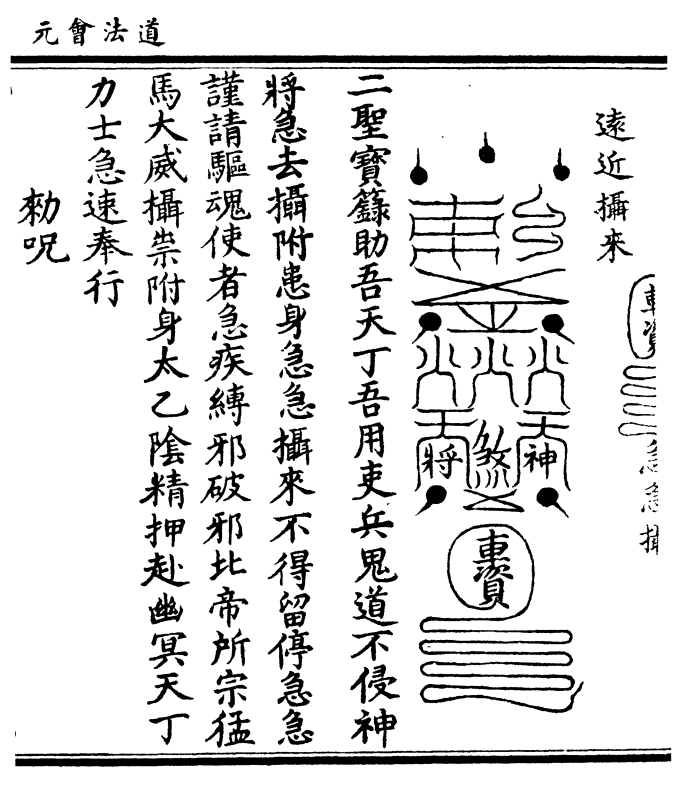 道法會元
遠近攝來
惠資
急急攝
神
煞
將
惠資
二聖寶籙助吾天丁吾用吏兵鬼道不侵神
將急去攝附患身急急攝來不得留停急急
謹請驅魂使者急疾縛邪破邪北帝所宗猛
馬大威攝祟附身太乙陰精押赴幽冥天丁
力士急速奉行
勑呪